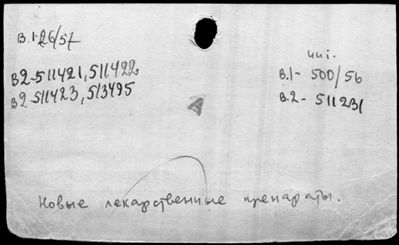 В.1-26/57
В2-511421, 511422
В2-511423, 513495
чит.
В.1- 500/56
В.2- 511231
А
Новые лекарственные препараты.